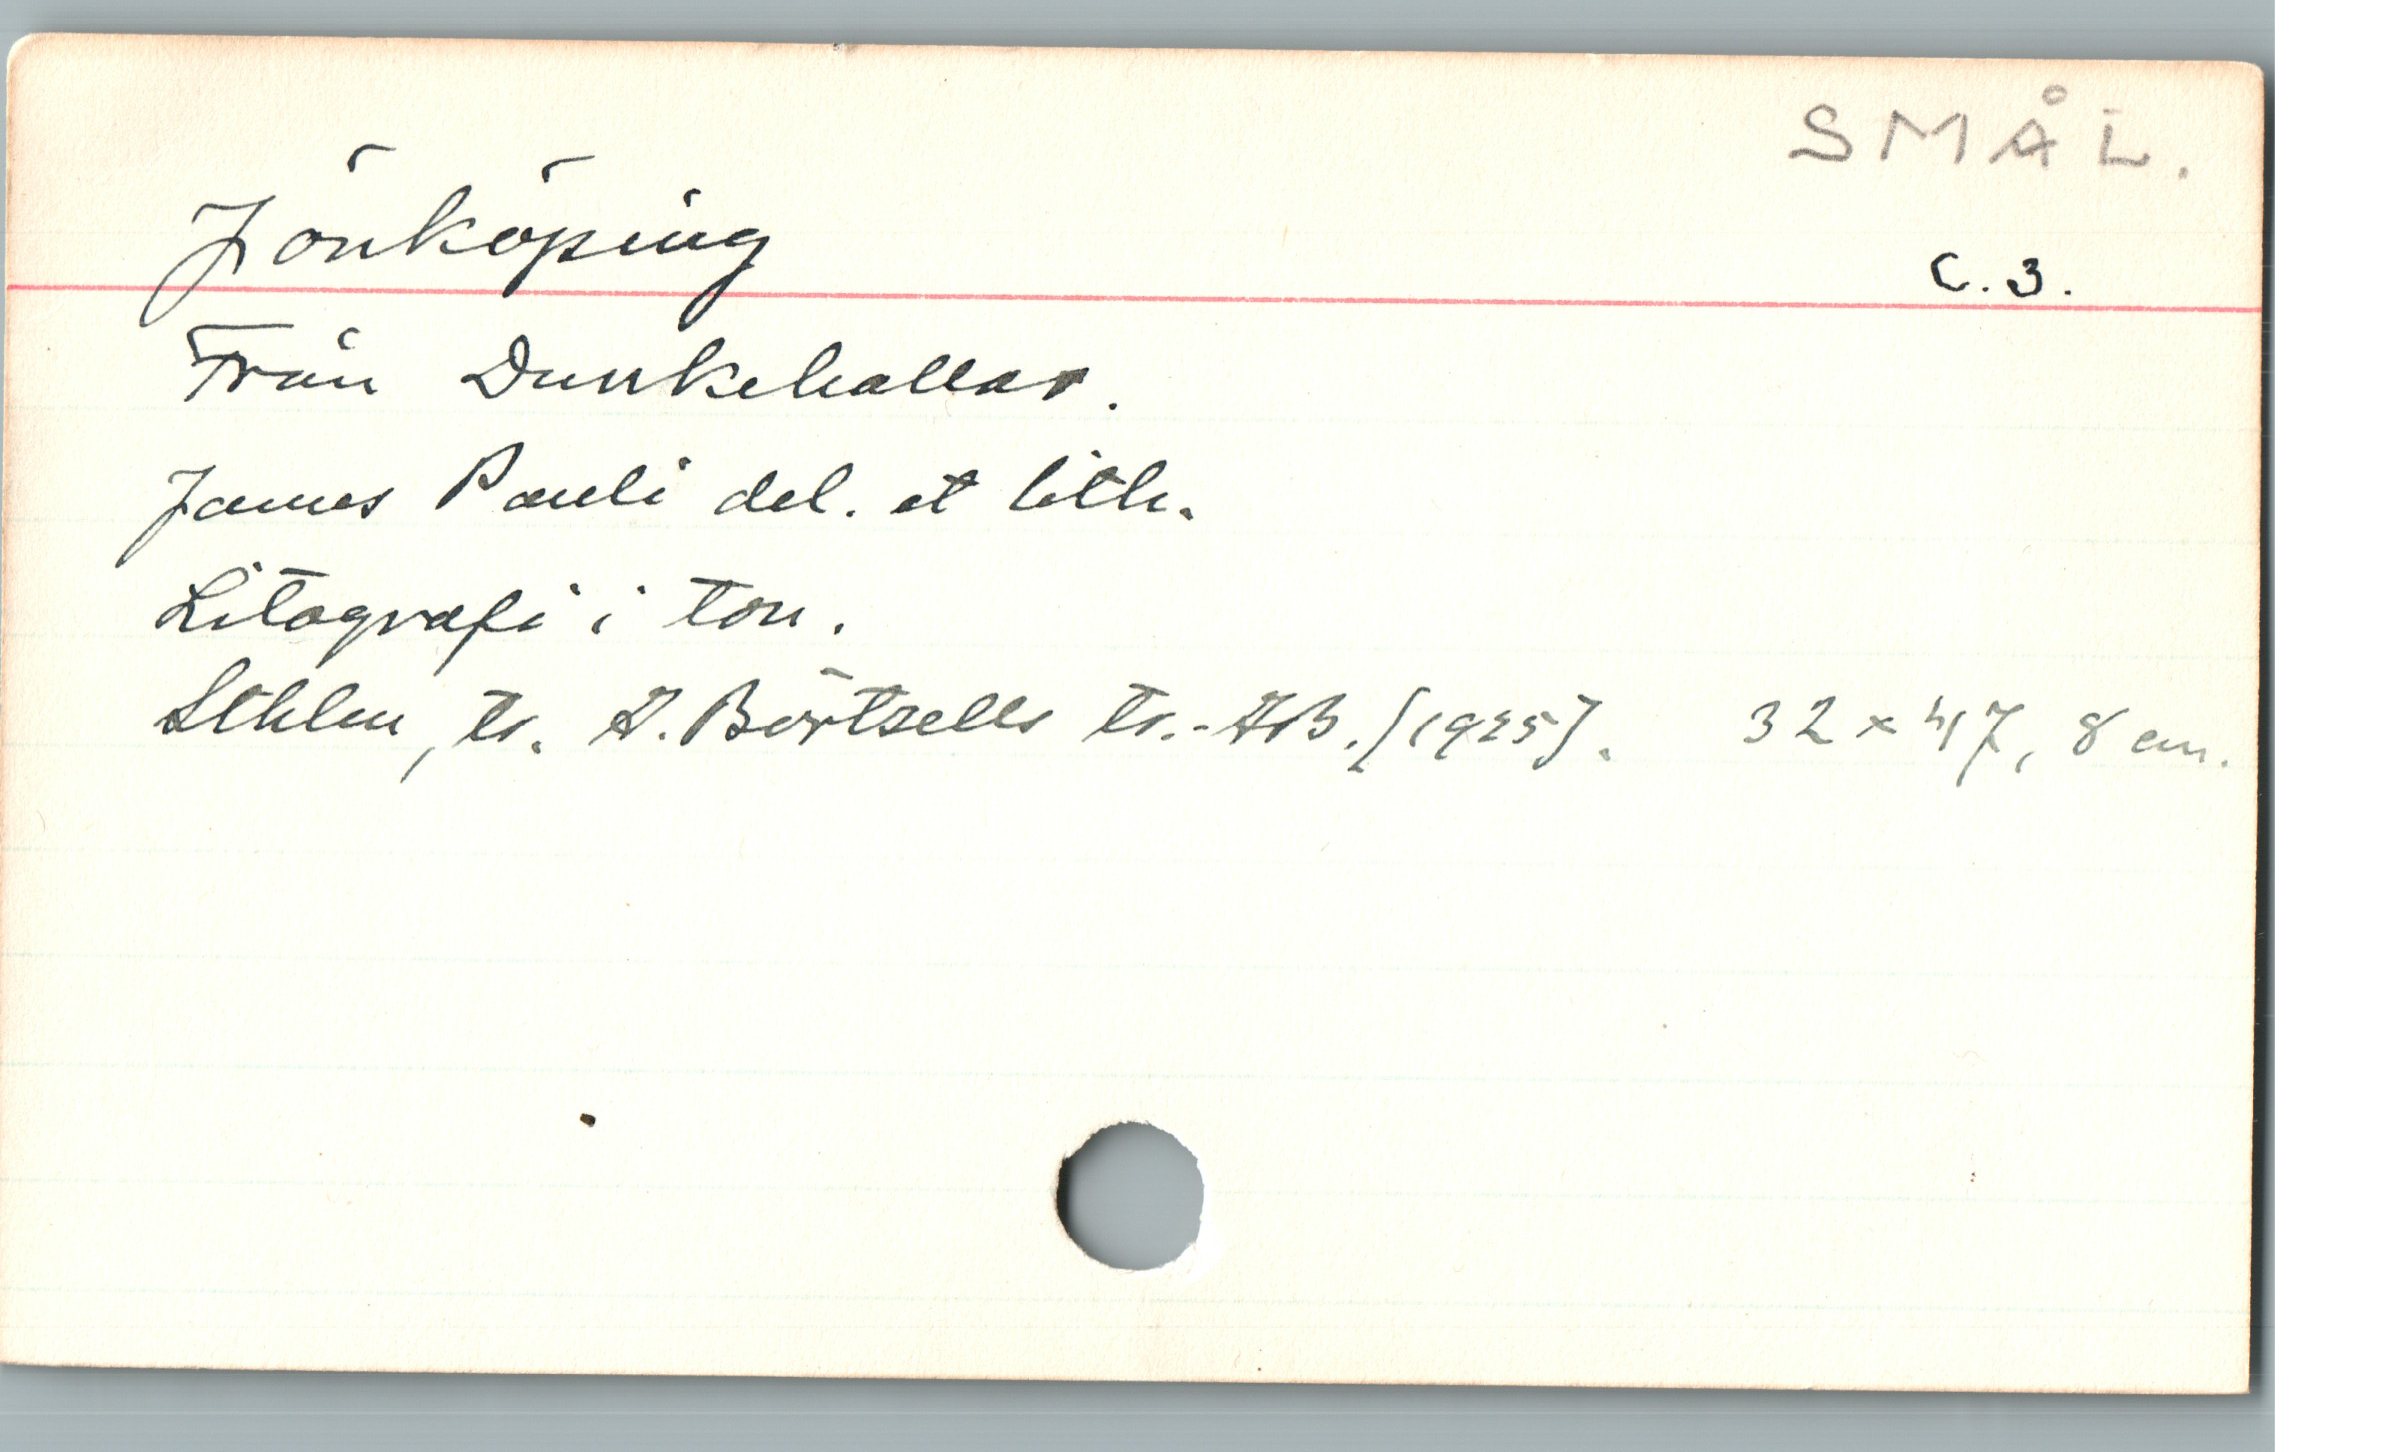 SMÅL.
Jönköping
C. 3.
Från Dunkehallar.
James Pauli del. et lith.
Litografi i ton.
Sthlm, tr. A. Börtzells tr.-AB. [1925]. 32 × 47,8 cm.